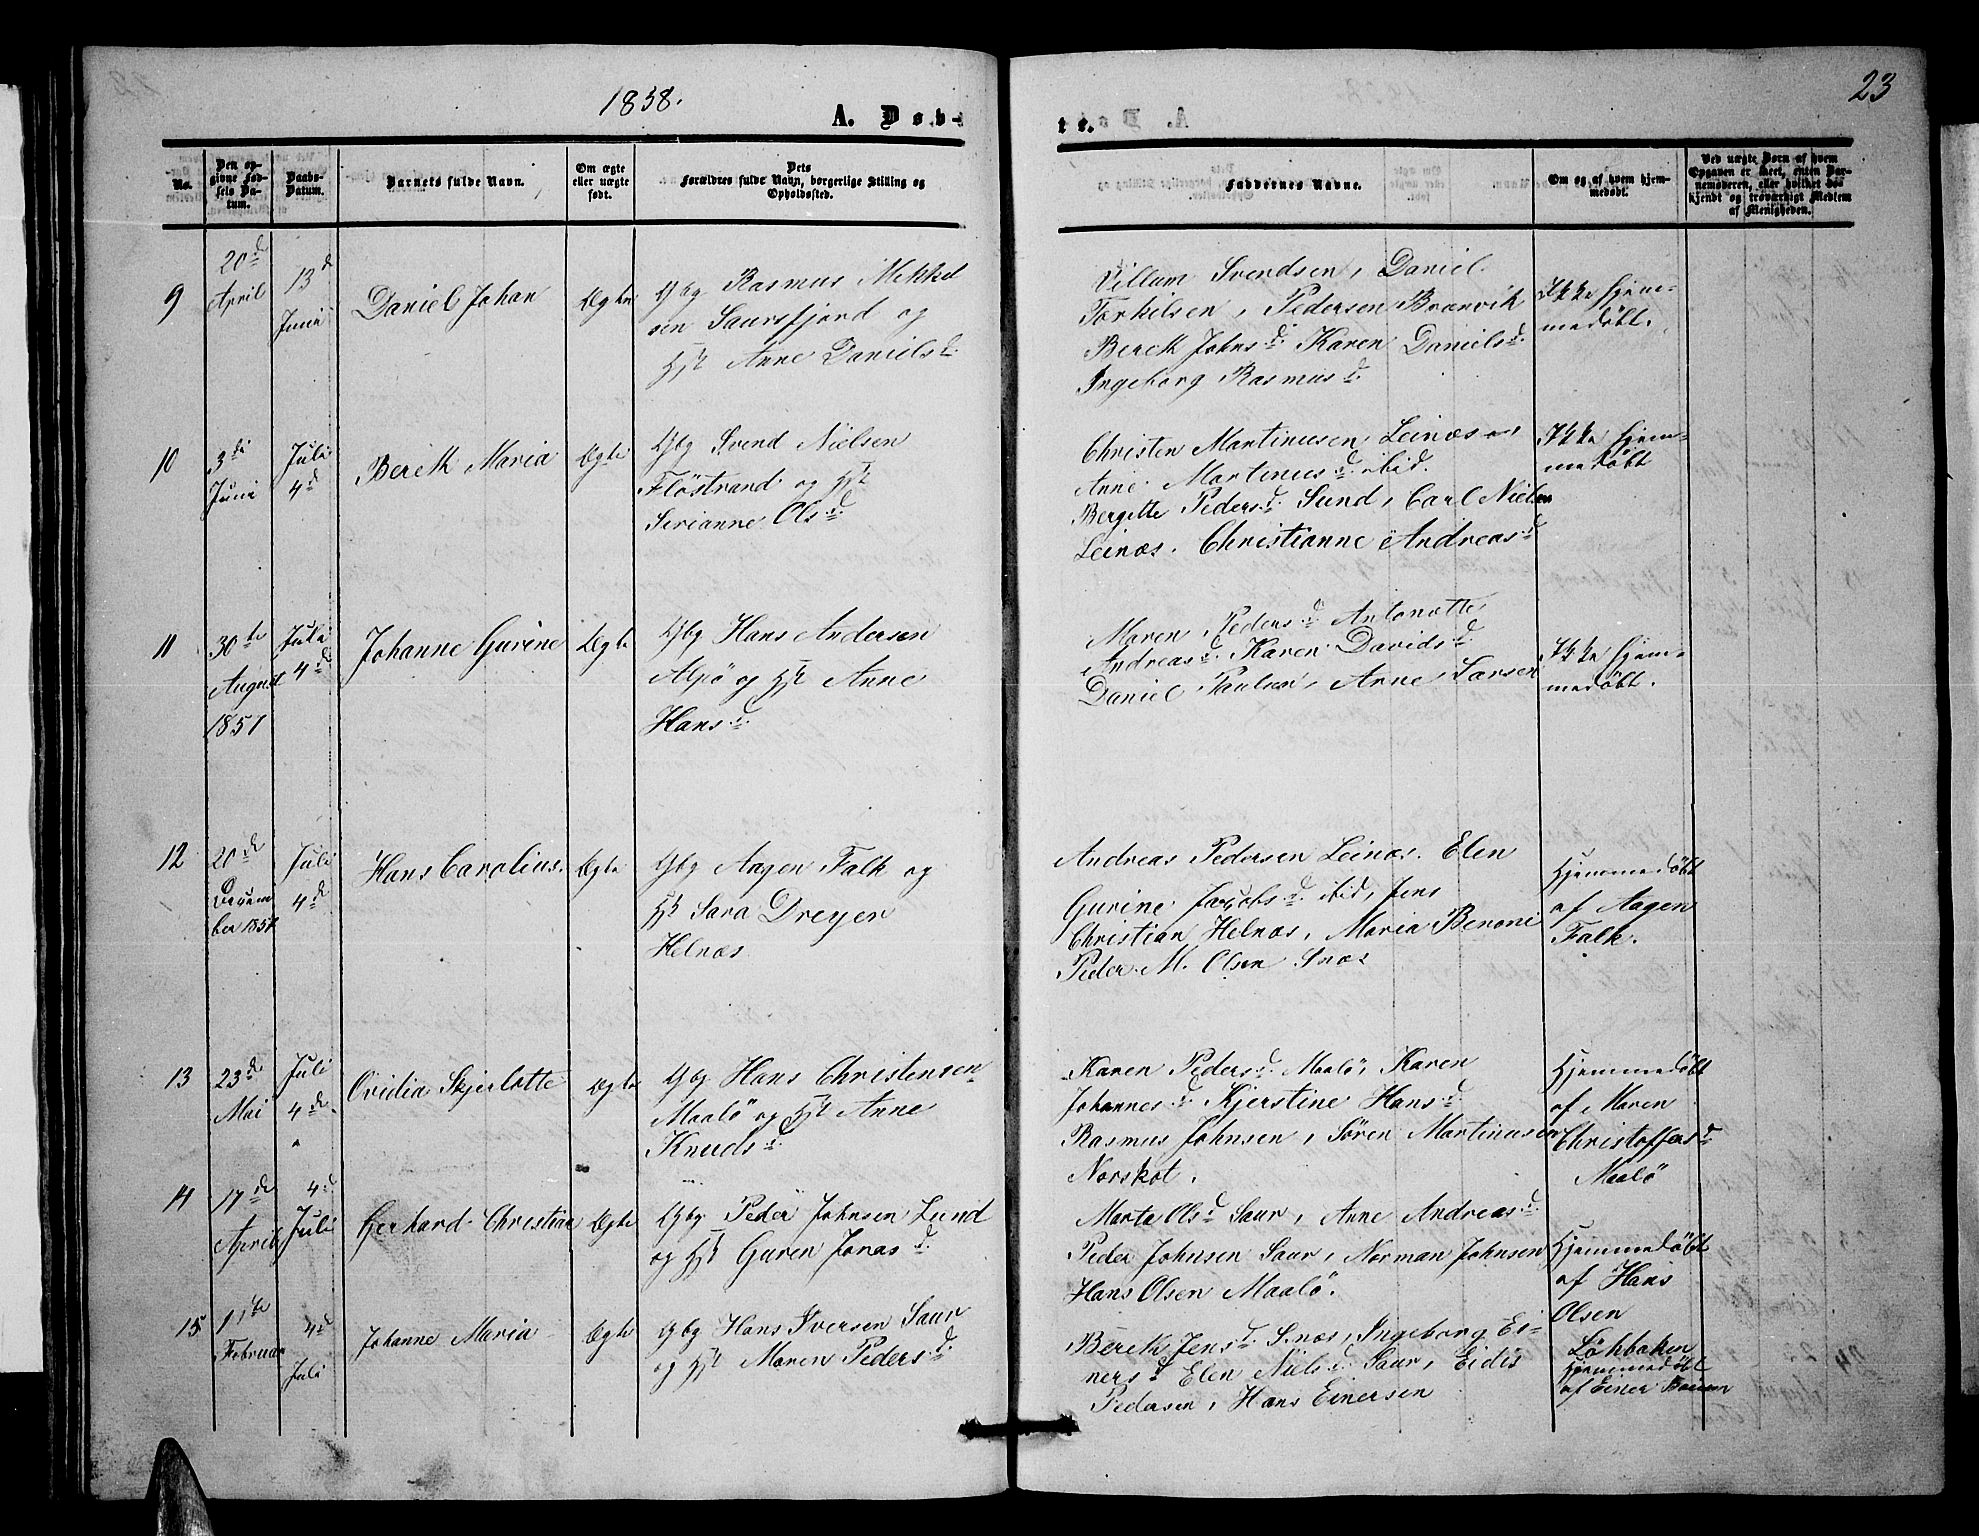 1858.
23
A. Døb-
te.
No.
Den op-
givne Fød-
sels Da-
tum.
Daabs-
Datum.
Barnets fulde Navn.
Om ægte
eller uægte
født.
Dets
Forældres fulde Navn, borgerlige Stilling og
Opholdssted.
Faddernes Navne.
Om og af hvem hjem-
medøbt.
Ved uægte Børn af hvem
Opgaven er skeet, enten Bar-
nemoderen, eller hvilket bekjendt og troværdigt Medlem
af Menigheden.
9
20de
April
13d
Juni
Daniel Johan
Ægte
Gbg Rasmus Mekkel
sen Saursfjord og
Hst Anne Danielsd.
Villum Svendsen, Daniel
Torkilsen, Pedersen Brœnvik
Berek Johnsd. Karen Danielsd.
Ingeborg Rasmusd.
Ikke hjem-
medøbt.
10
3di
Juni
Juli
4d
Berek Maria
Ægte
Gbg Svend Nielsen
Flöstrand og Hst
Serianne Olsd.
Christen Martinusen Leinæs
Anne Martinusd. ibid.
Bergitte Pedersd. Sund, Carl Nielsen
Leinæs. Christianne Andreasd
Ikke hjem-
medøbt
11
30te
August
1857
Juli
4d
Johanne Gurine
Ægte
Gbg Hans Andersen
Alpö og Hst Anne
Hansd.
Maren Pedersd Antonette
Andreasd. Karen Davidsd
Daniel Paulsen, Anne Larsen
Ikke hjem-
medøbt.
12
20de
Decem-
ber 1857
Juli
4de
Hans Carolius.
Ægte
Gbg Aagen Falk og
Hst Sara Dreyer
Helnæs
Andreas Pedersen Leinæs. Elen
Gurine Jacobsd. ibid, Jens
Christian Helnæs, Maria Benoni
Peder M. Olsen Snæs
Hjemmedøbt
af Aagen
Falk.
13
23de
Mai
Juli
4de
Ovidia Skjerlotte
Ægte
Gbg Hans Christensen
Maalö og Hst Anne
Knudsd.
Karen Pedersd. Maalö, Karen
Johannesd. Kjerstine Hansd
Rasmus Johnsen, Sören Martinusen
Norskot.
Hjemmedøbt
af Maren
Christoffersd
Maalö
14
17de
April
4d
Juli
Gerhard Christian
Ægte
Gbg Peder Johnsen Lund
og Hst Guren Jonasd.
Marta Olsd Saur, Anne Andreasd.
Peder Johnsen Saur, Norman Johnsen
Hans Olsen Maalö.
Hjemmedøbt
af Hans
Olsen
Løkbaken
15
11te
Februar
4d
Juli
Johanne Maria
Ægte
Gbg Hans Iversen Saur
og Hst Maren Pedersd.
Berek Jensd. Snæs, Ingeborg Ei-
nersd Elen Nielsd. Saur, Eidis
Pedersen, Hans Einersen
Hjemmedøbt
af Einer